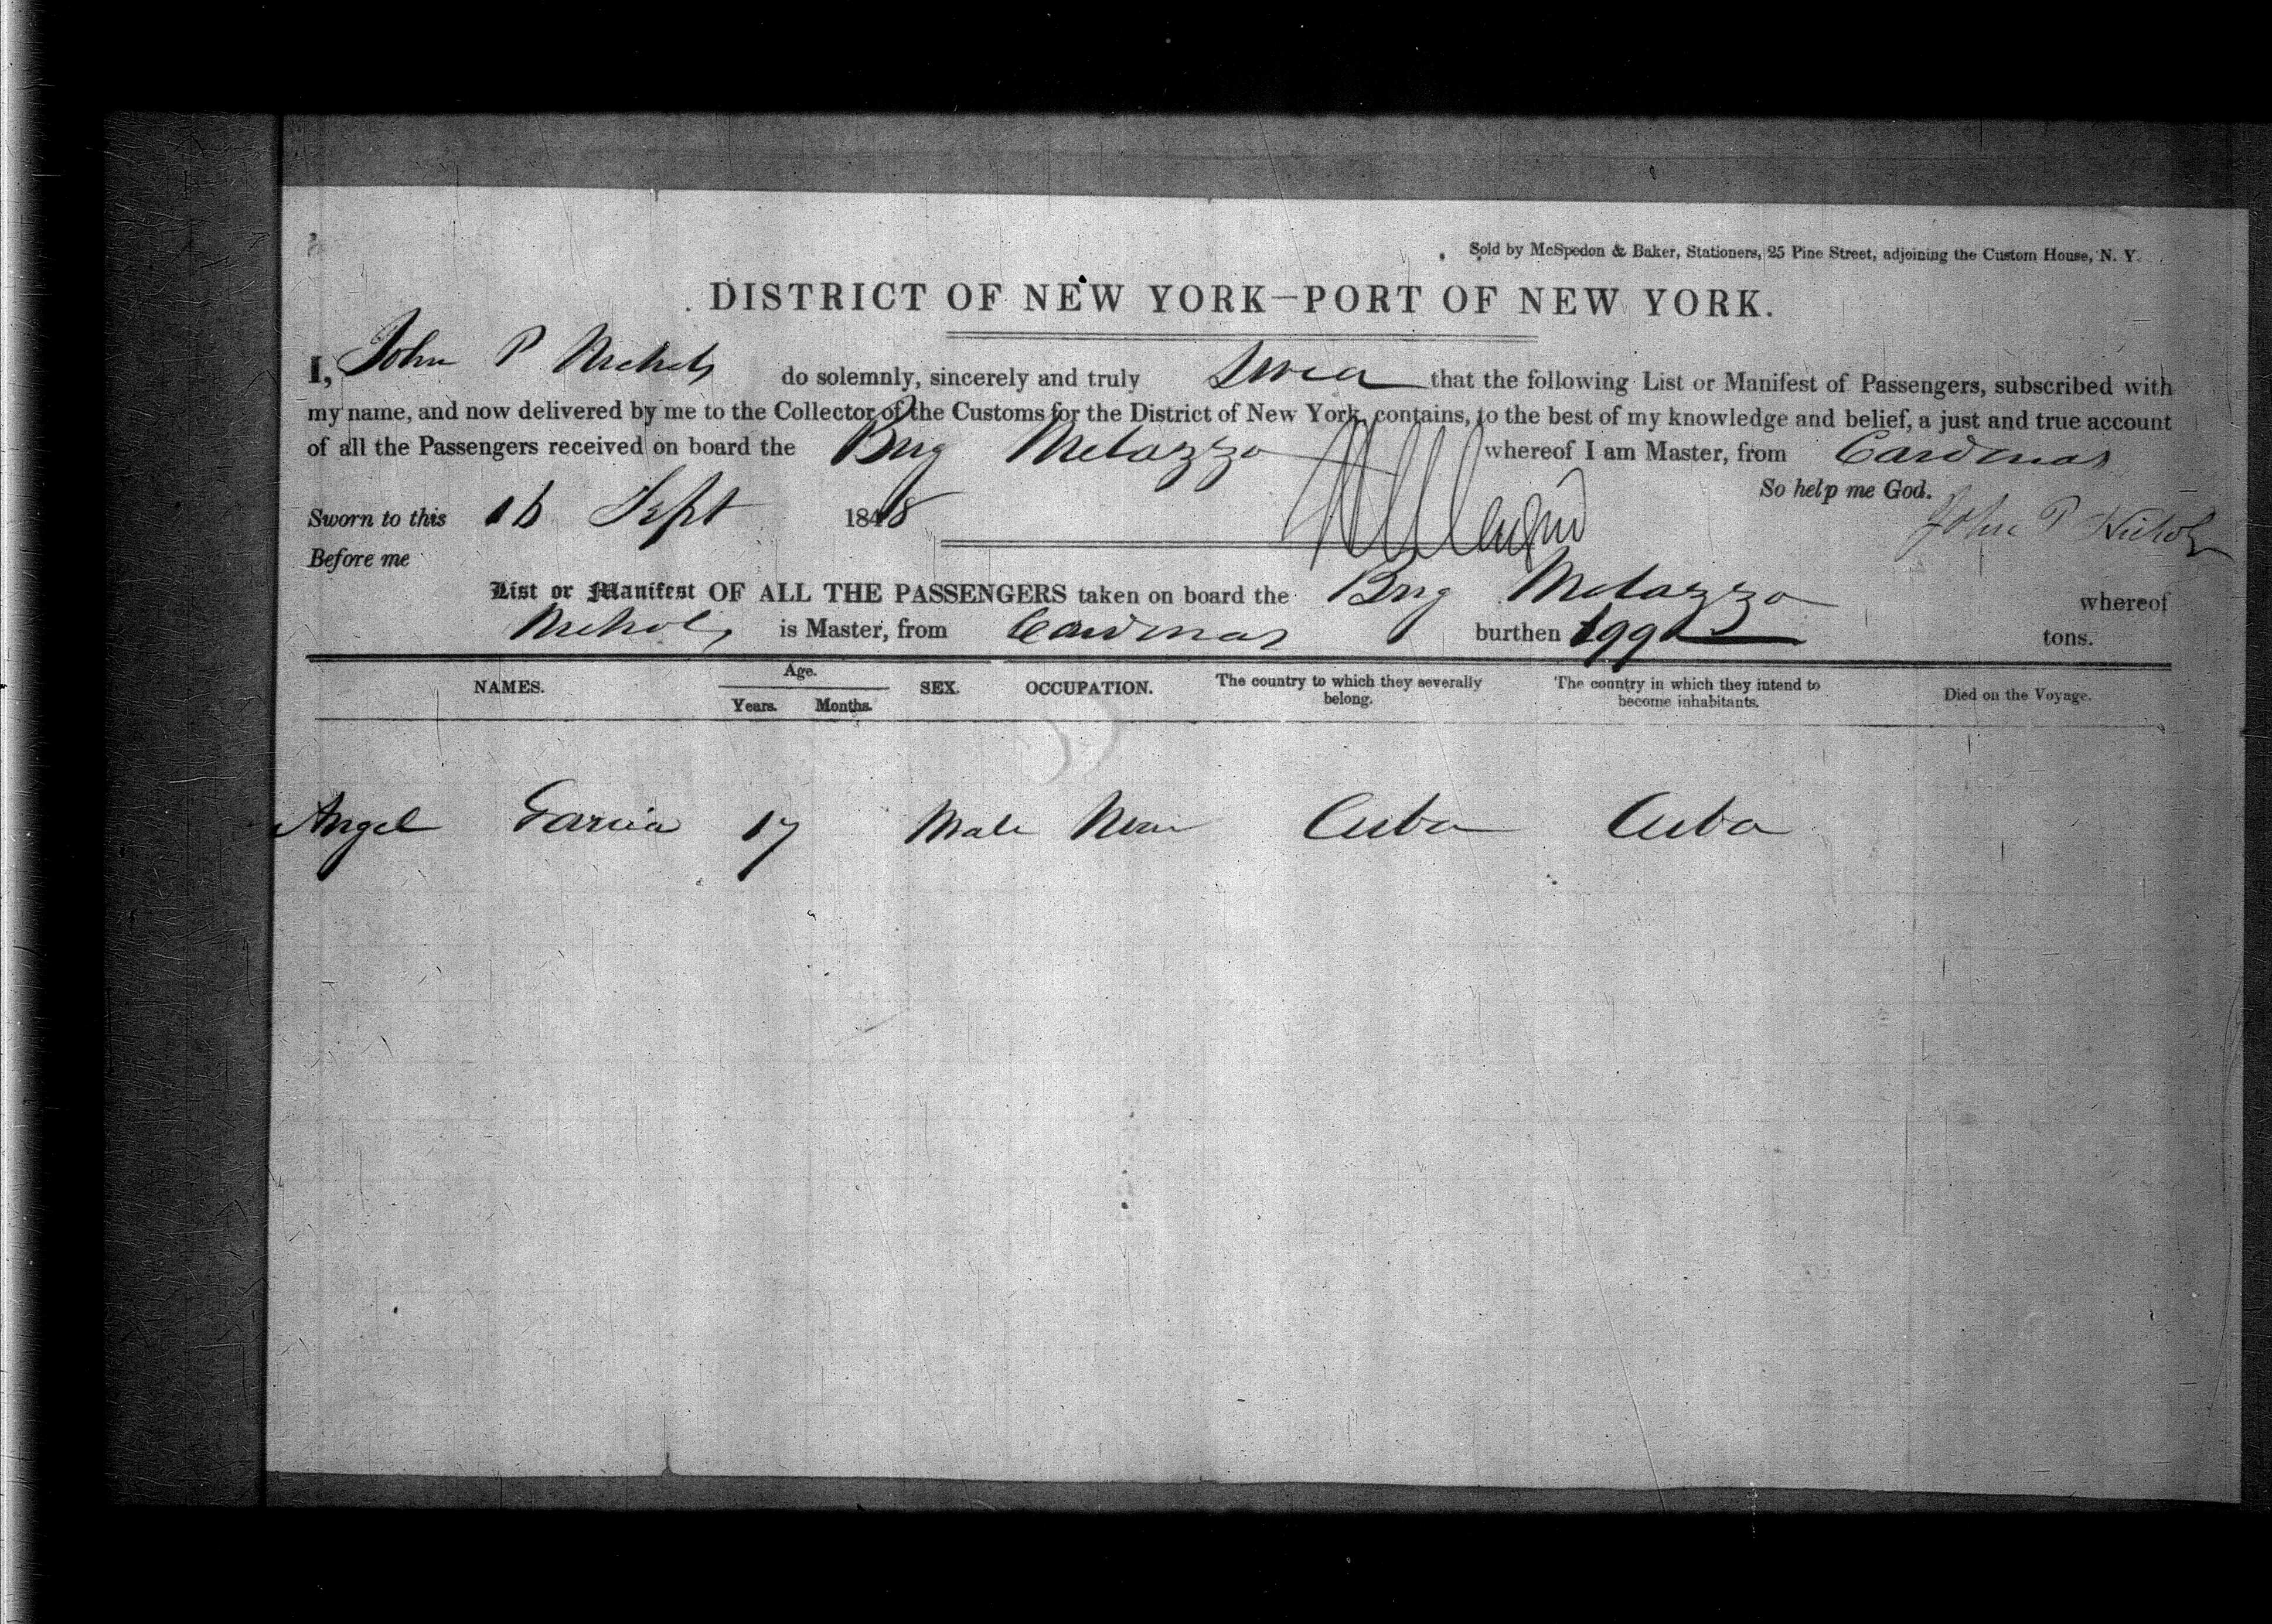 Sold by McSpedon & Baker, Stationers, 25 Pine Street, adjoining the Custom House, N. Y.
DISTRICT OF NEW YORK—PORT OF NEW YORK.
I, John P Nichols do solemnly, sincerely and truly swear that the following List or Manifest of Passengers, subscribed with
my name, and now delivered by me to the Collector of the Customs for the District of New York, contains, to the best of my knowledge and belief, a just and true account
of all the Passengers received on board the Brig Melazzo whereof I am Master, from Cardenas
So help me God.
Sworn to this 16 Sept 1848 John P Nichols
Before me
List or Manifest OF ALL THE PASSENGERS taken on board the Brig Melazzo whereof
Nichols is Master, from Cardenas burthen 199 tons.
NAMES. Age. Years. Months. SEX. OCCUPATION. The country to which they severally belong. The country in which they intend to become inhabitants. Died on the Voyage.
Angel Garcia 17 Male Cuba Cuba